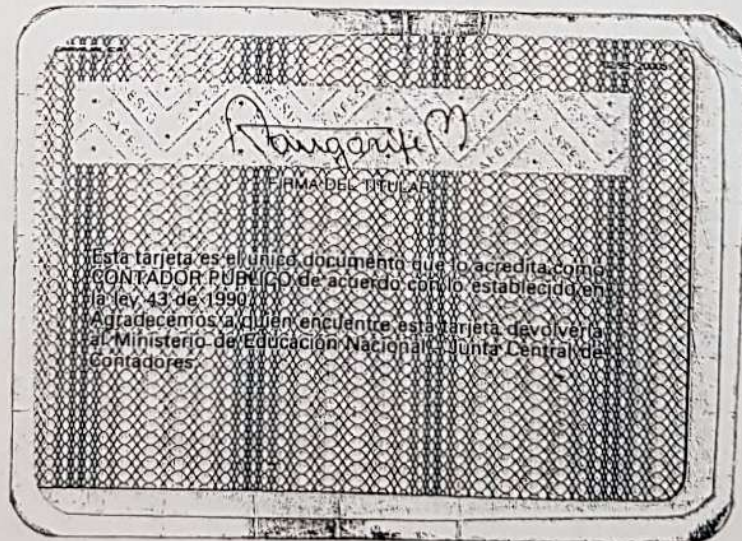 FIRMA DEL TITULAR
Esta tarjeta es el único documento que lo acredita como
CONTADOR PUBLICO de acuerdo con lo establecido en
la ley 43 de 1990.
Agradecemos a quien encuentre esta tarjeta devolverla
al Ministerio de Educación Nacional - Junta Central de
Contadores.